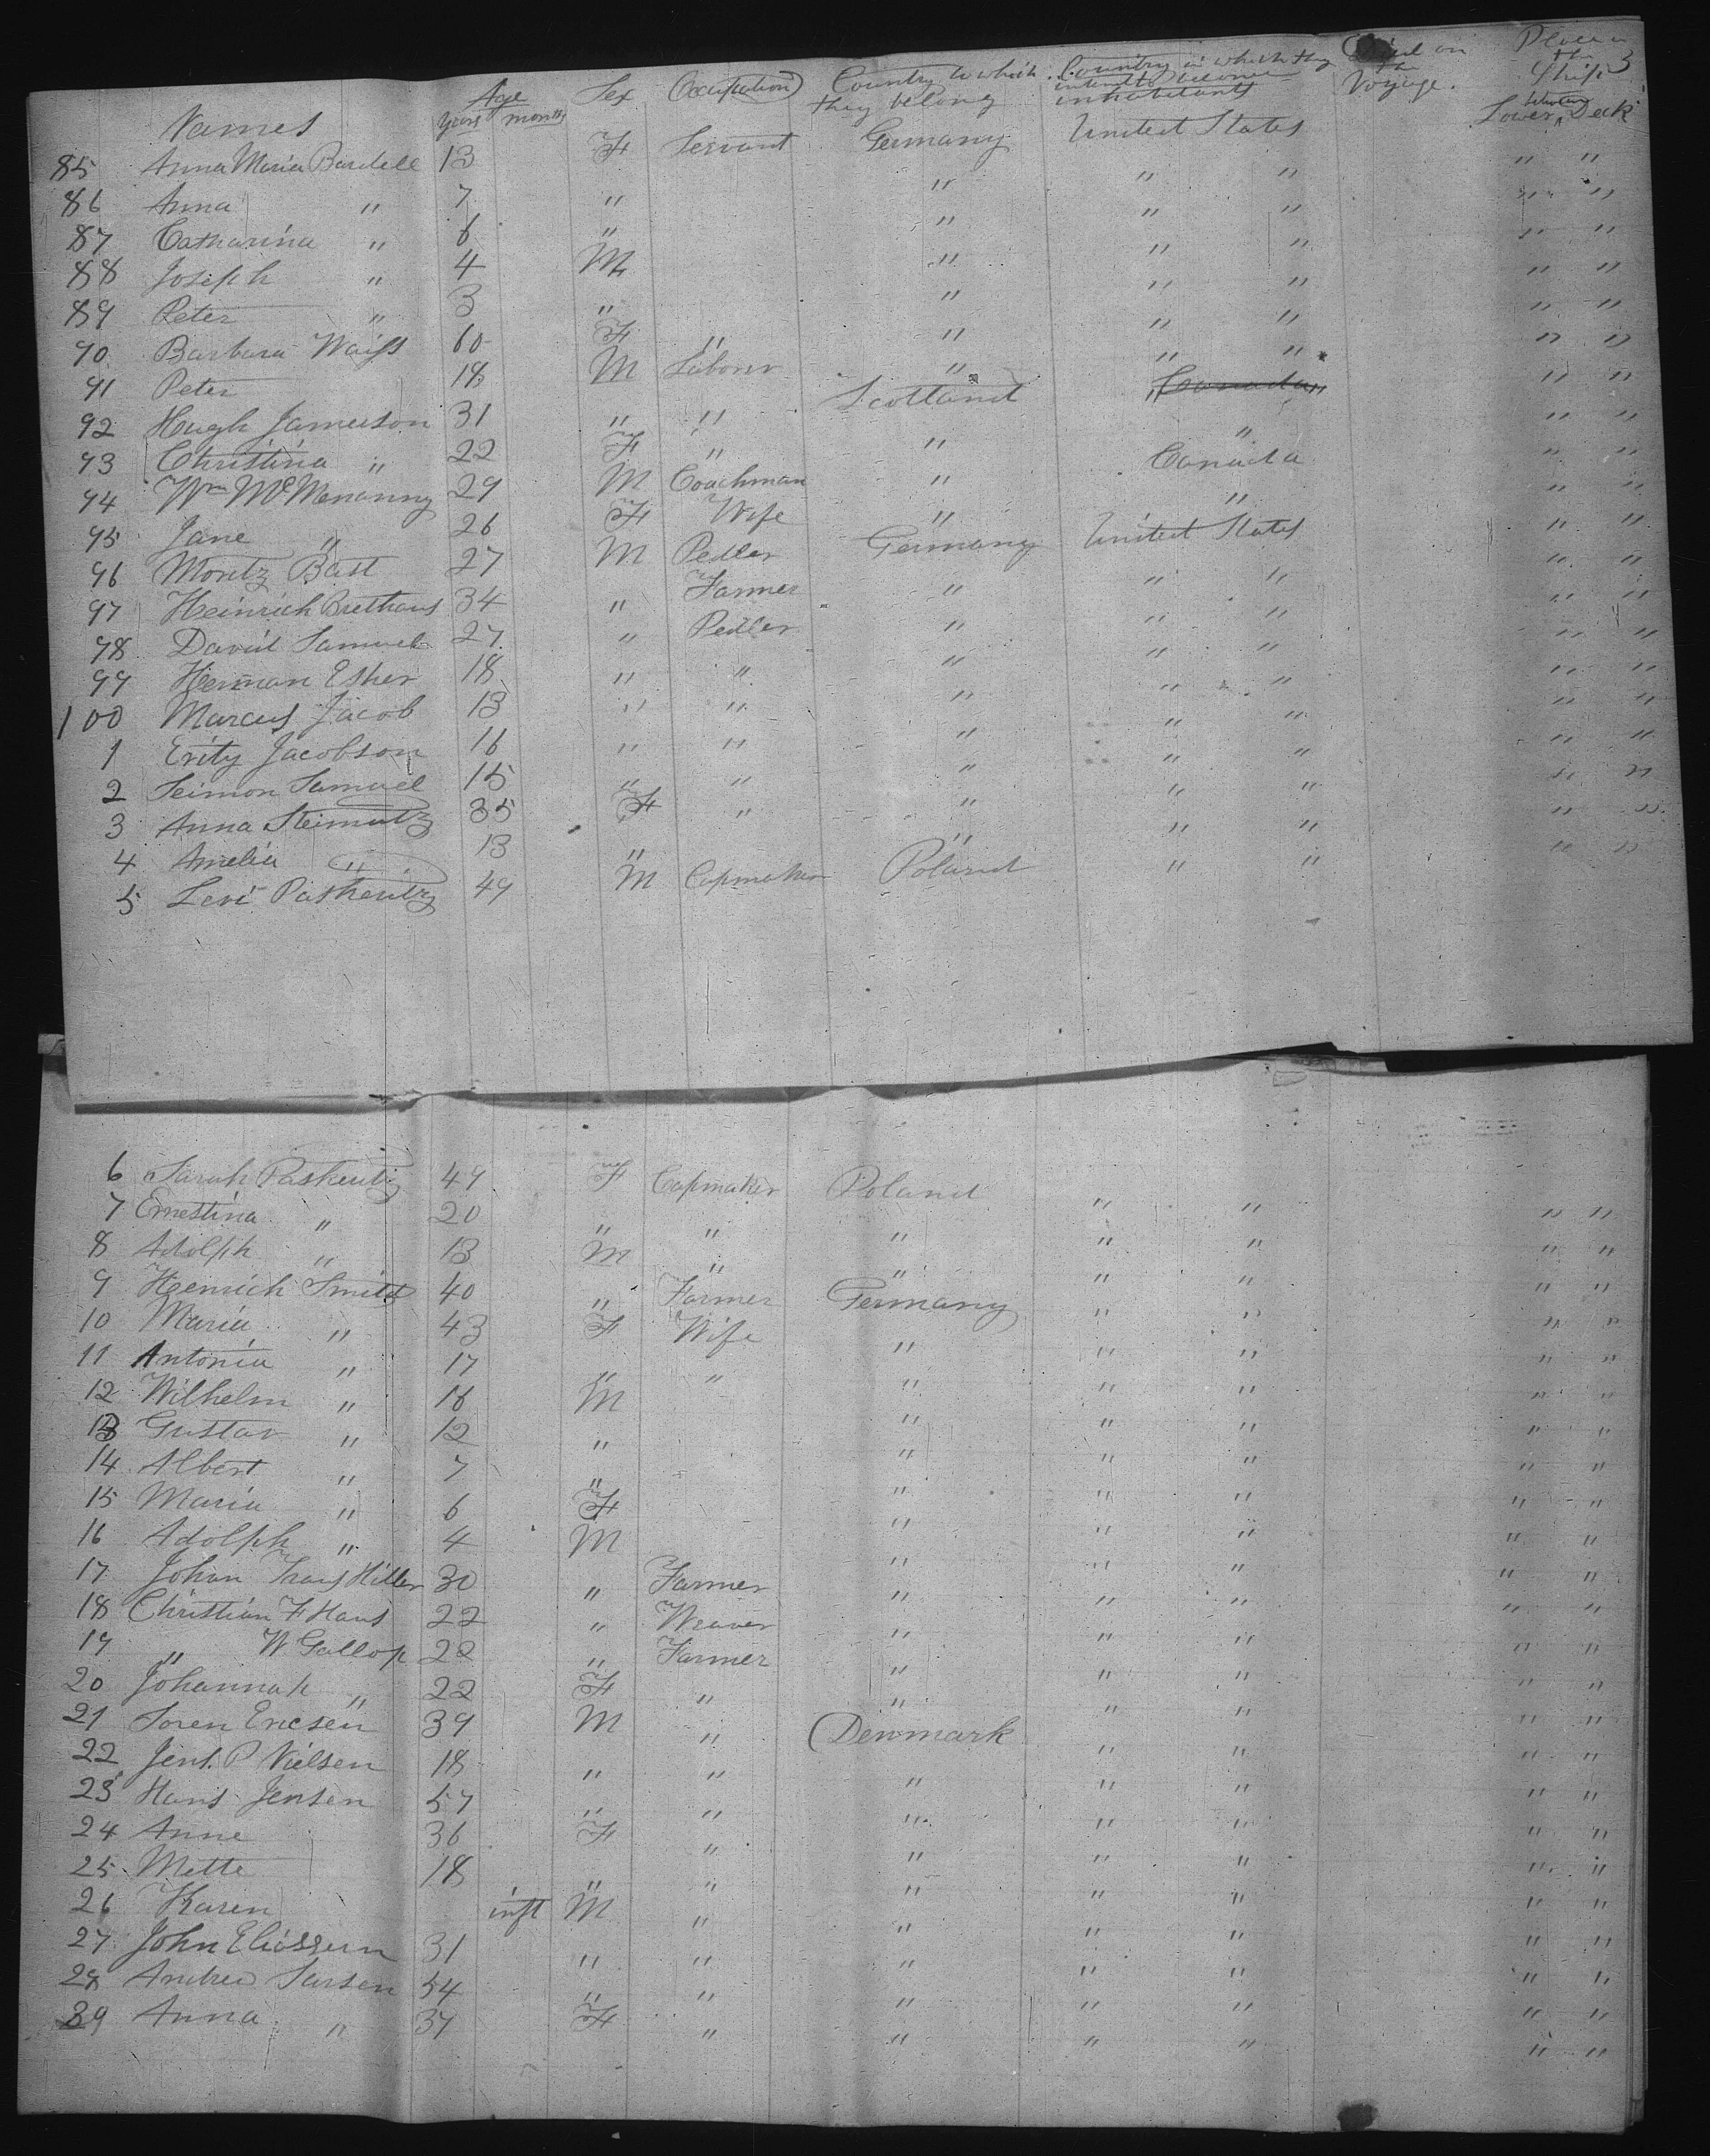 Names Age Years months Sex Occupation Country to which they belong Country in which they intend to become inhabitants Died on the Voyage. Place in the Ship 3
85 Anna Maria Bardell 13 F Servant Germany United States Lower Deck
86 Anna " 7 " " " " " "
87 Catharina " 6 " " " " " "
88 Joseph " 4 M " " " " "
89 Peter " 3 " " " " " "
90 Barbara Waiss 60 F " " " " " "
91 Peter 18 M Laborer " " " " "
92 Hugh Jameison 31 " " Scotland " Canada " " "
93 Christina " 22 F " " " " "
94 Wm McMenanny 29 M Coachman " Canada " "
95 Jane " 26 F Wife " " " "
96 Moritz Bast 27 M Pedler Germany United States " "
97 Heinrich Brethaus 34 " Farmer " " " " "
98 David Samuel 27 " Pedler " " " " "
99 Herman Esher 18 " " " " " " "
100 Marcus Jacob 13 " " " " " " "
1 Erity Jacobson 16 " " " " " " "
2 Seimon Samuel 15 " " " " " " "
3 Anna Steimutz 35 F " " " " " "
4 Amelia " 13 " " " " " "
5 Levi Paskeutz 49 M Capmaker Poland " " " "
6 Sarah Paskeutz 49 F Capmaker Poland " " " "
7 Ernestina " 20 " " " " " " "
8 Adolph " 13 M " " " " " "
9 Heenrich Smitt 40 " Farmer Germany " " " "
10 Maria " 43 F Wife " " " " "
11 Antonia " 17 " " " " " " "
12 Wilhelm " 16 M " " " " "
13 Gustav " 12 " " " " " "
14 Albert " 7 " " " " " "
15 Maria " 6 F " " " " "
16 Adolph " 4 M " " " " "
17 Johan Hiller 30 " Farmer " " " " "
18 Christian F Haus 22 " Weaver " " " " "
19 " W Gallop 22 " Farmer " " " " "
20 Johannah " 22 F " " " " " "
21 Soren Ericsen 39 M " Denmark " " " "
22 Jens. P Nielsen 18 " " " " " " "
23 Hans Jensen 57 " " " " " " "
24 Anne 36 F " " " " " "
25 Mette 18 " " " " " " "
26 Karen inft M " " " " " "
27 John Eliassen 31 " " " " " " "
28 Andrew Larsen 54 " " " " " " "
29 Anna " 37 F " " " " " "